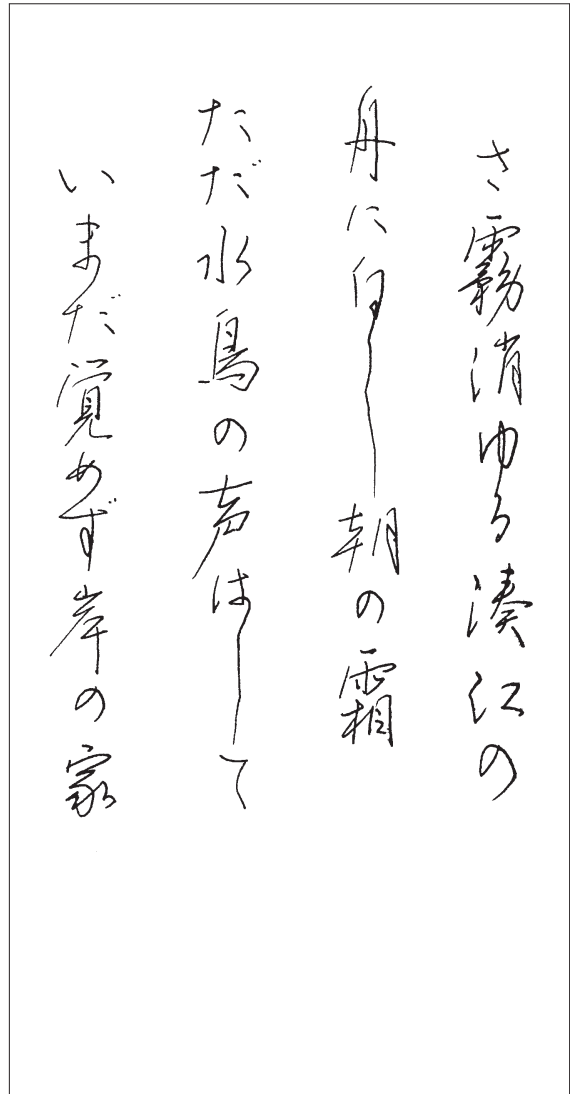 さ霧消ゆる湊江の
舟に白し朝の霜
ただ水鳥の声はして
いまだ覚めず岸の家